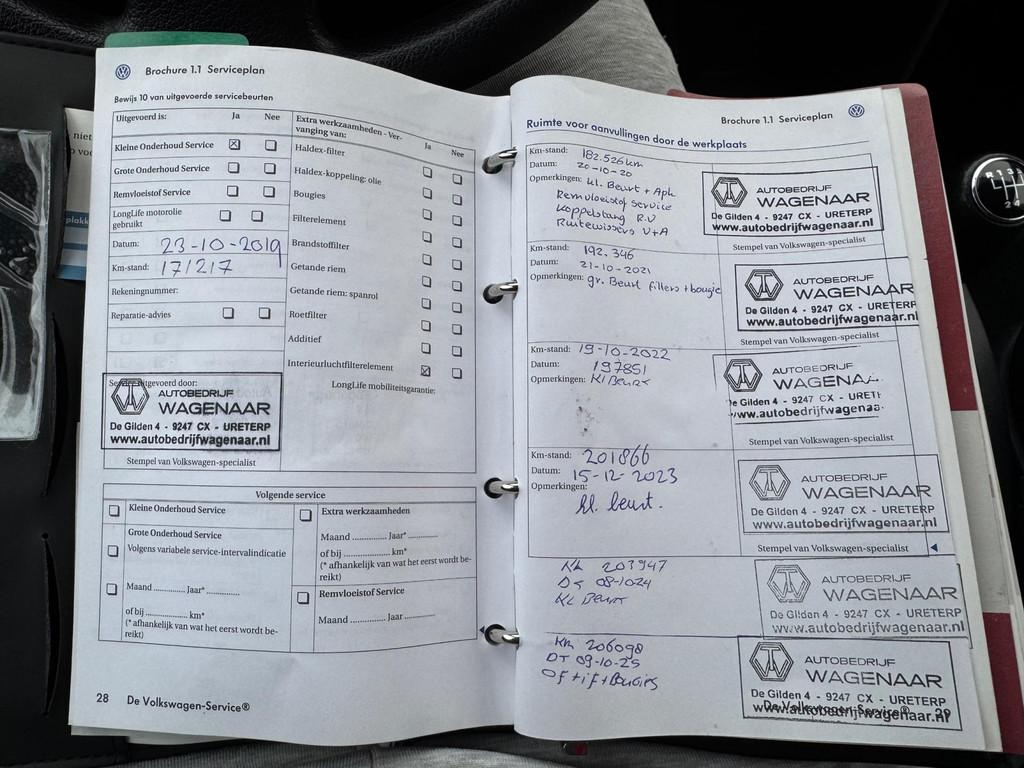 Brochure 1.1 Serviceplan
Bewijs 10 van uitgevoerde servicebeurten
Uitgevoerd is: Ja Nee
Kleine Onderhoud Service
Grote Onderhoud Service
Remvloeistof Service
LongLife motorolie
gebruikt
Datum: 23-10-2019
Km-stand: 171217
Rekeningnummer:
Reparatie-advies
Extra werkzaamheden - Ver-
vanging van: Ja Nee
Haldex-filter
Haldex-koppeling: olie
Bougies
Filterelement
Brandstoffilter
Getande riem
Getande riem: spanrol
Roetfilter
Additief
Interieurluchtfilterelement
LongLife mobiliteitsgarantie:
Service uitgevoerd door:
AUTOBEDRIJF
WAGENAAR
De Gilden 4 - 9247 CX - URETERP
www.autobedrijfwagenaar.nl
Stempel van Volkswagen-specialist
Volgende service
Kleine Onderhoud Service
Grote Onderhoud Service
Volgens variabele service-intervalindicatie
Maand ............ Jaar* ............
of bij ................ km*
(* afhankelijk van wat het eerst wordt be-
reikt)
Extra werkzaamheden
Maand ............ Jaar* ...........
of bij .................... km*
(* afhankelijk van wat het eerst wordt be-
reikt)
Remvloeistof Service
Maand ............ Jaar ............
28 De Volkswagen-Service®
Brochure 1.1 Serviceplan
Ruimte voor aanvullingen door de werkplaats
Km-stand: 182.526km
Datum: 20-10-20
Opmerkingen: kl. Beurt + Apk
Remvloeistof service
Koppelstang R.V
Ruitewissers V+A
AUTOBEDRIJF
WAGENAAR
De Gilden 4 - 9247 CX - URETERP
www.autobedrijfwagenaar.nl
Stempel van Volkswagen-specialist
Km-stand: 192.346
Datum: 21-10-2021
Opmerkingen: gr. Beurt filters + bougie
AUTOBEDRIJF
WAGENAAR
De Gilden 4 - 9247 CX - URETERP
www.autobedrijfwagenaar.nl
Stempel van Volkswagen-specialist
Km-stand: 19-10-2022
Datum: 197851
Opmerkingen: Kl Beurt
AUTOBEDRIJF
WAGENA
De Gilden 4 - 9247 CX - URET
www.autobedrijfwagenaa
Stempel van Volkswagen-specialist
Km-stand: 201866
Datum: 15-12-2023
Opmerkingen: kl. beurt.
AUTOBEDRIJF
WAGENAAR
De Gilden 4 - 9247 CX - URETERP
www.autobedrijfwagenaar.nl
Stempel van Volkswagen-specialist
Km 203947
DT 08-1024
KL Beurt
AUTOBEDRIJF
WAGENAAR
De Gilden 4 - 9247 CX - URETERP
www.autobedrijfwagenaar.nl
Km 206098
DT 09-10-25
OF+if+Bougies
AUTOBEDRIJF
WAGENAAR
De Gilden 4 - 9247 CX - URETERP
www.autobedrijfwagenaar.nl
De Volkswagen-Service® 29